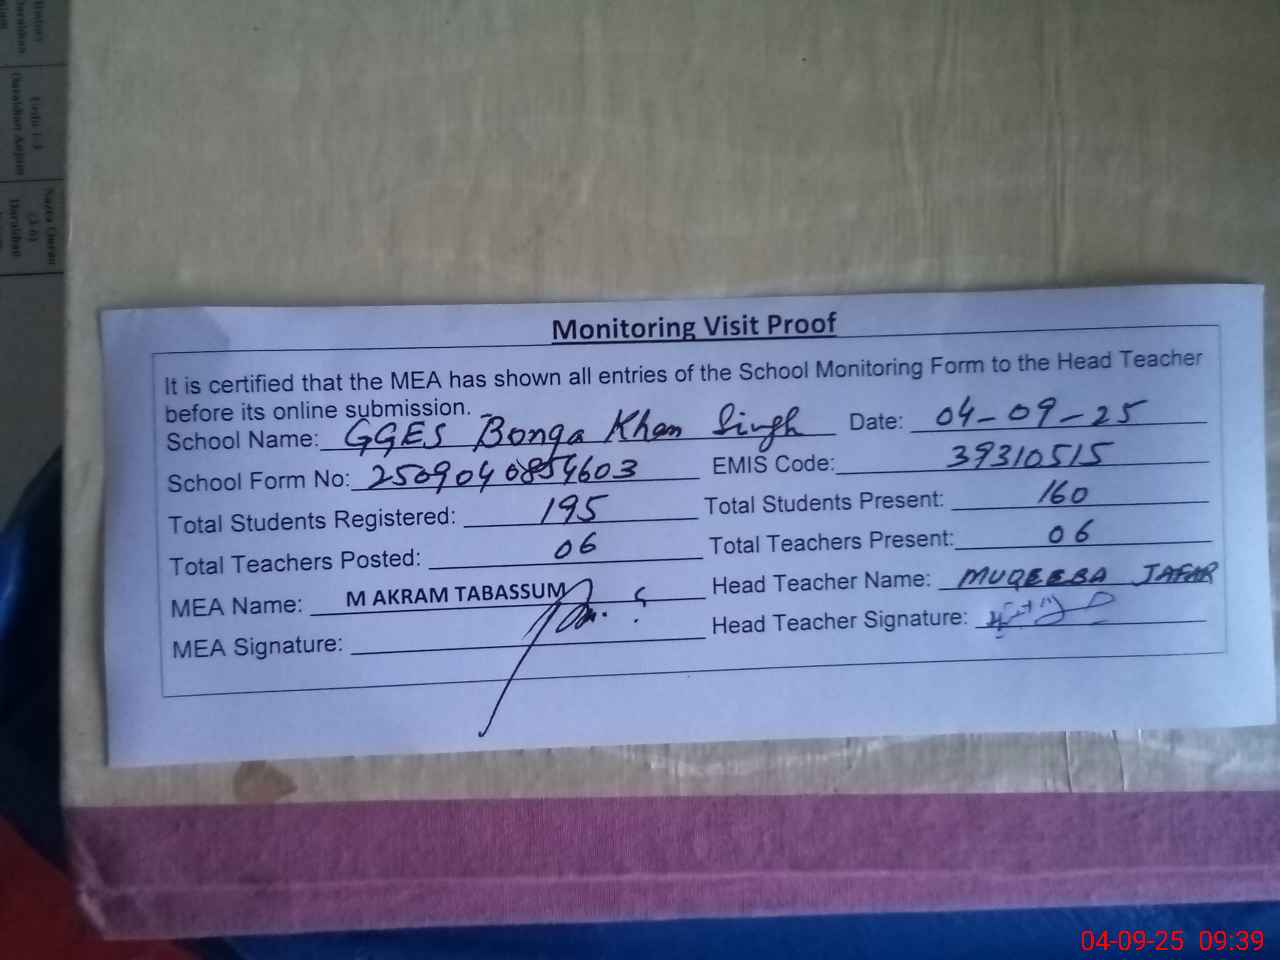 Monitoring Visit Proof
It is certified that the MEA has shown all entries of the School Monitoring Form to the Head Teacher
before its online submission.
School Name: GGES Bonga Khan Singh Date: 04-09-25
School Form No: 2509040854603 EMIS Code: 39310515
Total Students Registered: 195 Total Students Present: 160
Total Teachers Posted: 06 Total Teachers Present: 06
MEA Name: M AKRAM TABASSUM Head Teacher Name: MUQEEBA JAFAR
MEA Signature: Head Teacher Signature:
04-09-25 09:39